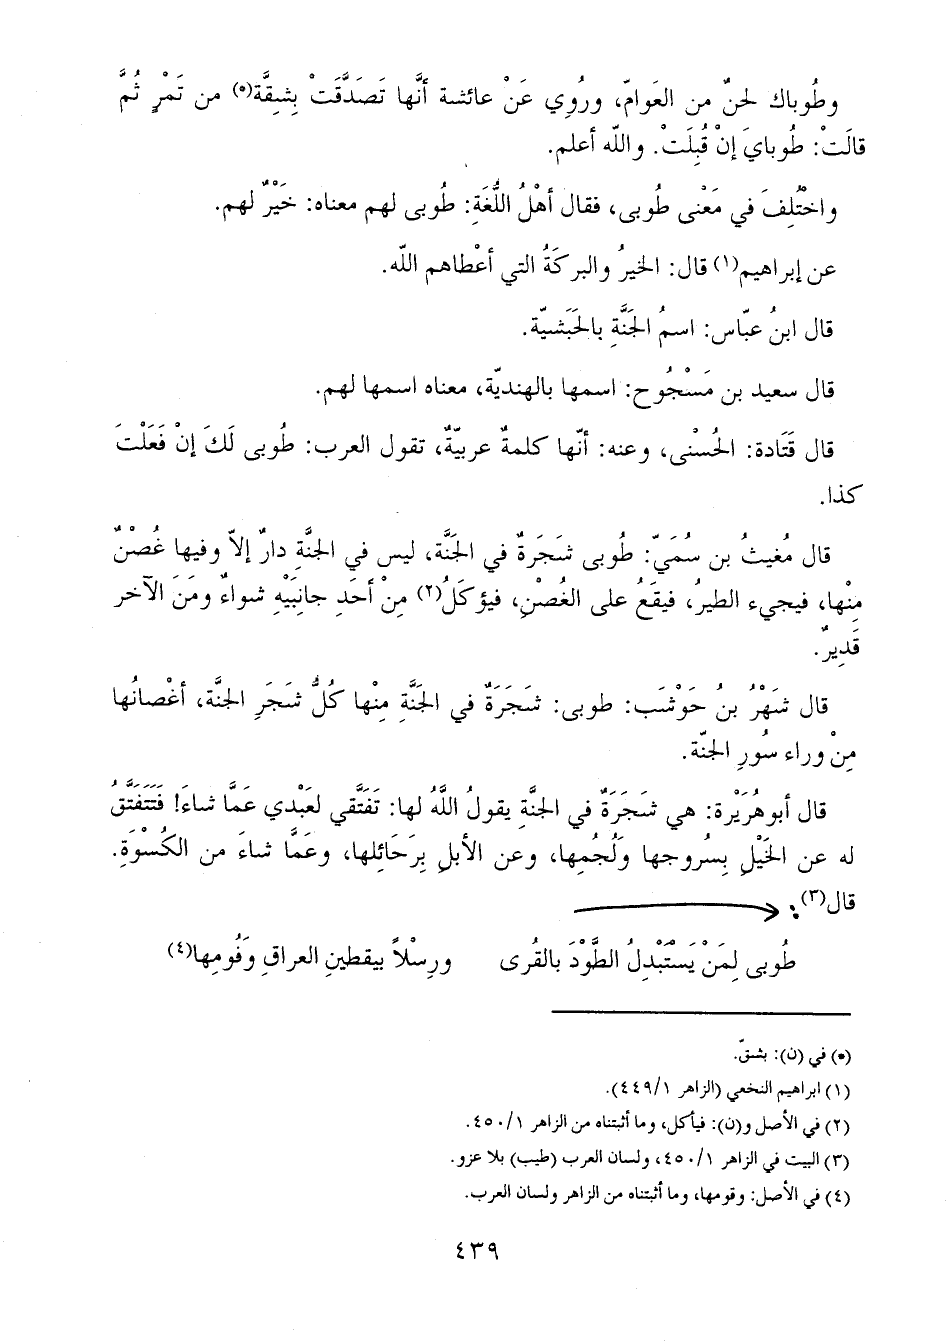 وطُوباك لحنٌ من العَوامّ، ورُوِي عَنْ عائشة أنَّها تَصَدَّقَتْ بِشِقَّة(*) من تَمْرٍ ثُمَّ
قالَتْ: طُوبايَ إنْ قُبِلَتْ. والله أعلم.
واخْتُلِفَ في مَعْنى طُوبى، فقال أهْلُ اللُّغَةِ: طُوبى لهم معناه: خَيْرٌ لهم.
عن إبراهيم(١) قال: الخيرُ والبركَةُ التي أعْطاهم اللّه.
قال ابنُ عبّاس: اسمُ الجَنَّةِ بالحَبَشيّة.
قال سعيد بن مَسْجُوح: اسمها بالهنديّة، معناه اسمها لهم.
قال قَتَادة: الحُسْنى، وعنه: أنّها كلمةٌ عربيّةٌ، تقول العرب: طُوبى لَكَ إنْ فَعَلْتَ
كذا.
قال مُغيثُ بن سُمَيّ: طُوبى شَجَرَةٌ في الجَنَّة، ليس في الجنَّةِ دارٌ إلاّ وفيها غُصْنٌ
مِنْها، فيجيء الطيرُ، فيقَعُ على الغُصْنِ، فيؤكَلُ(٢) مِنْ أحَدِ جانِبَيْهِ شواءٌ ومَنَ الآخر
قَدِيرٌ.
قال شَهْرُ بنُ حَوْشَب: طوبى: شَجَرَةٌ في الجَنَّةِ مِنْها كُلُّ شَجَرِ الجنَّة، أغْصانُها
مِنْ وراء سُورِ الجنّة.
قال أبوهُرَيْرة: هي شَجَرَةٌ في الجنَّةِ يقولُ اللَّهُ لها: تَفَتَّقي لعَبْدي عَمَّا شاءَ! فَتَتَفَتَّقُ
له عن الخَيْلِ بِسُروجها ولُجُمِها، وعن الأبلِ بِرَحَائلها، وعَمَّا شاءَ من الكُسْوَةِ.
قال(٣):
طُوبى لِمَنْ يَسْتَبْدِلُ الطَّوْدَ بالقُرى ورِسْلاً بيقطينِ العراقِ وَفُومِها(٤)
(*) في (ن): بشقّ.
(١) ابراهيم النخعي (الزاهر ٤٤٩/١).
(٢) في الأصل و(ن): فيأكل، وما أثبتناه من الزاهر ٤٥٠/١.
(٣) البيت في الزاهر ٤٥٠/١، ولسان العرب (طيب) بلا عزو.
(٤) في الأصل: وقومها، وما أثبتناه من الزاهر ولسان العرب.
٤٣٩